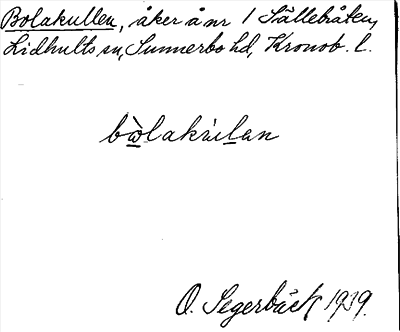 Bolakullen, åker å nr 1 Sällebråten,
Lidhults sn, Sunnerbo hd, Kronob. l.
bòlakùlan
O. Segerbäck 1919.